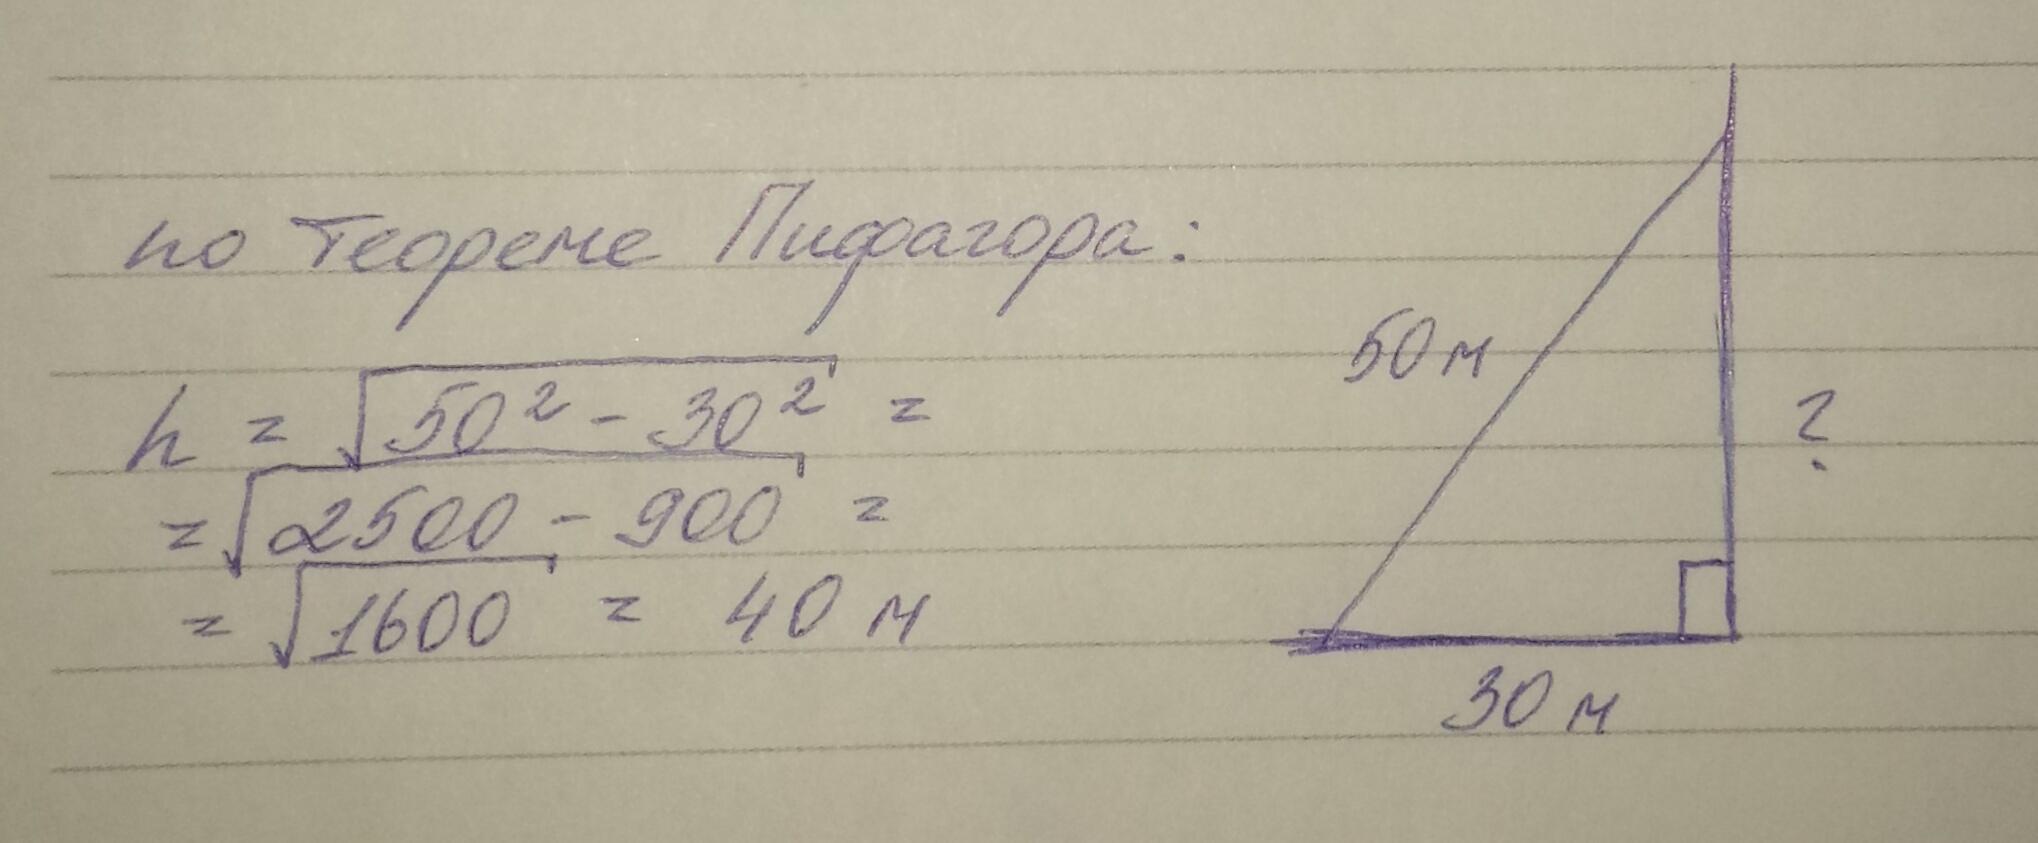 по теореме Пифагора:
h = √50² - 30² =
= √2500 - 900 =
= √1600 = 40 м
50 м
?
30 м